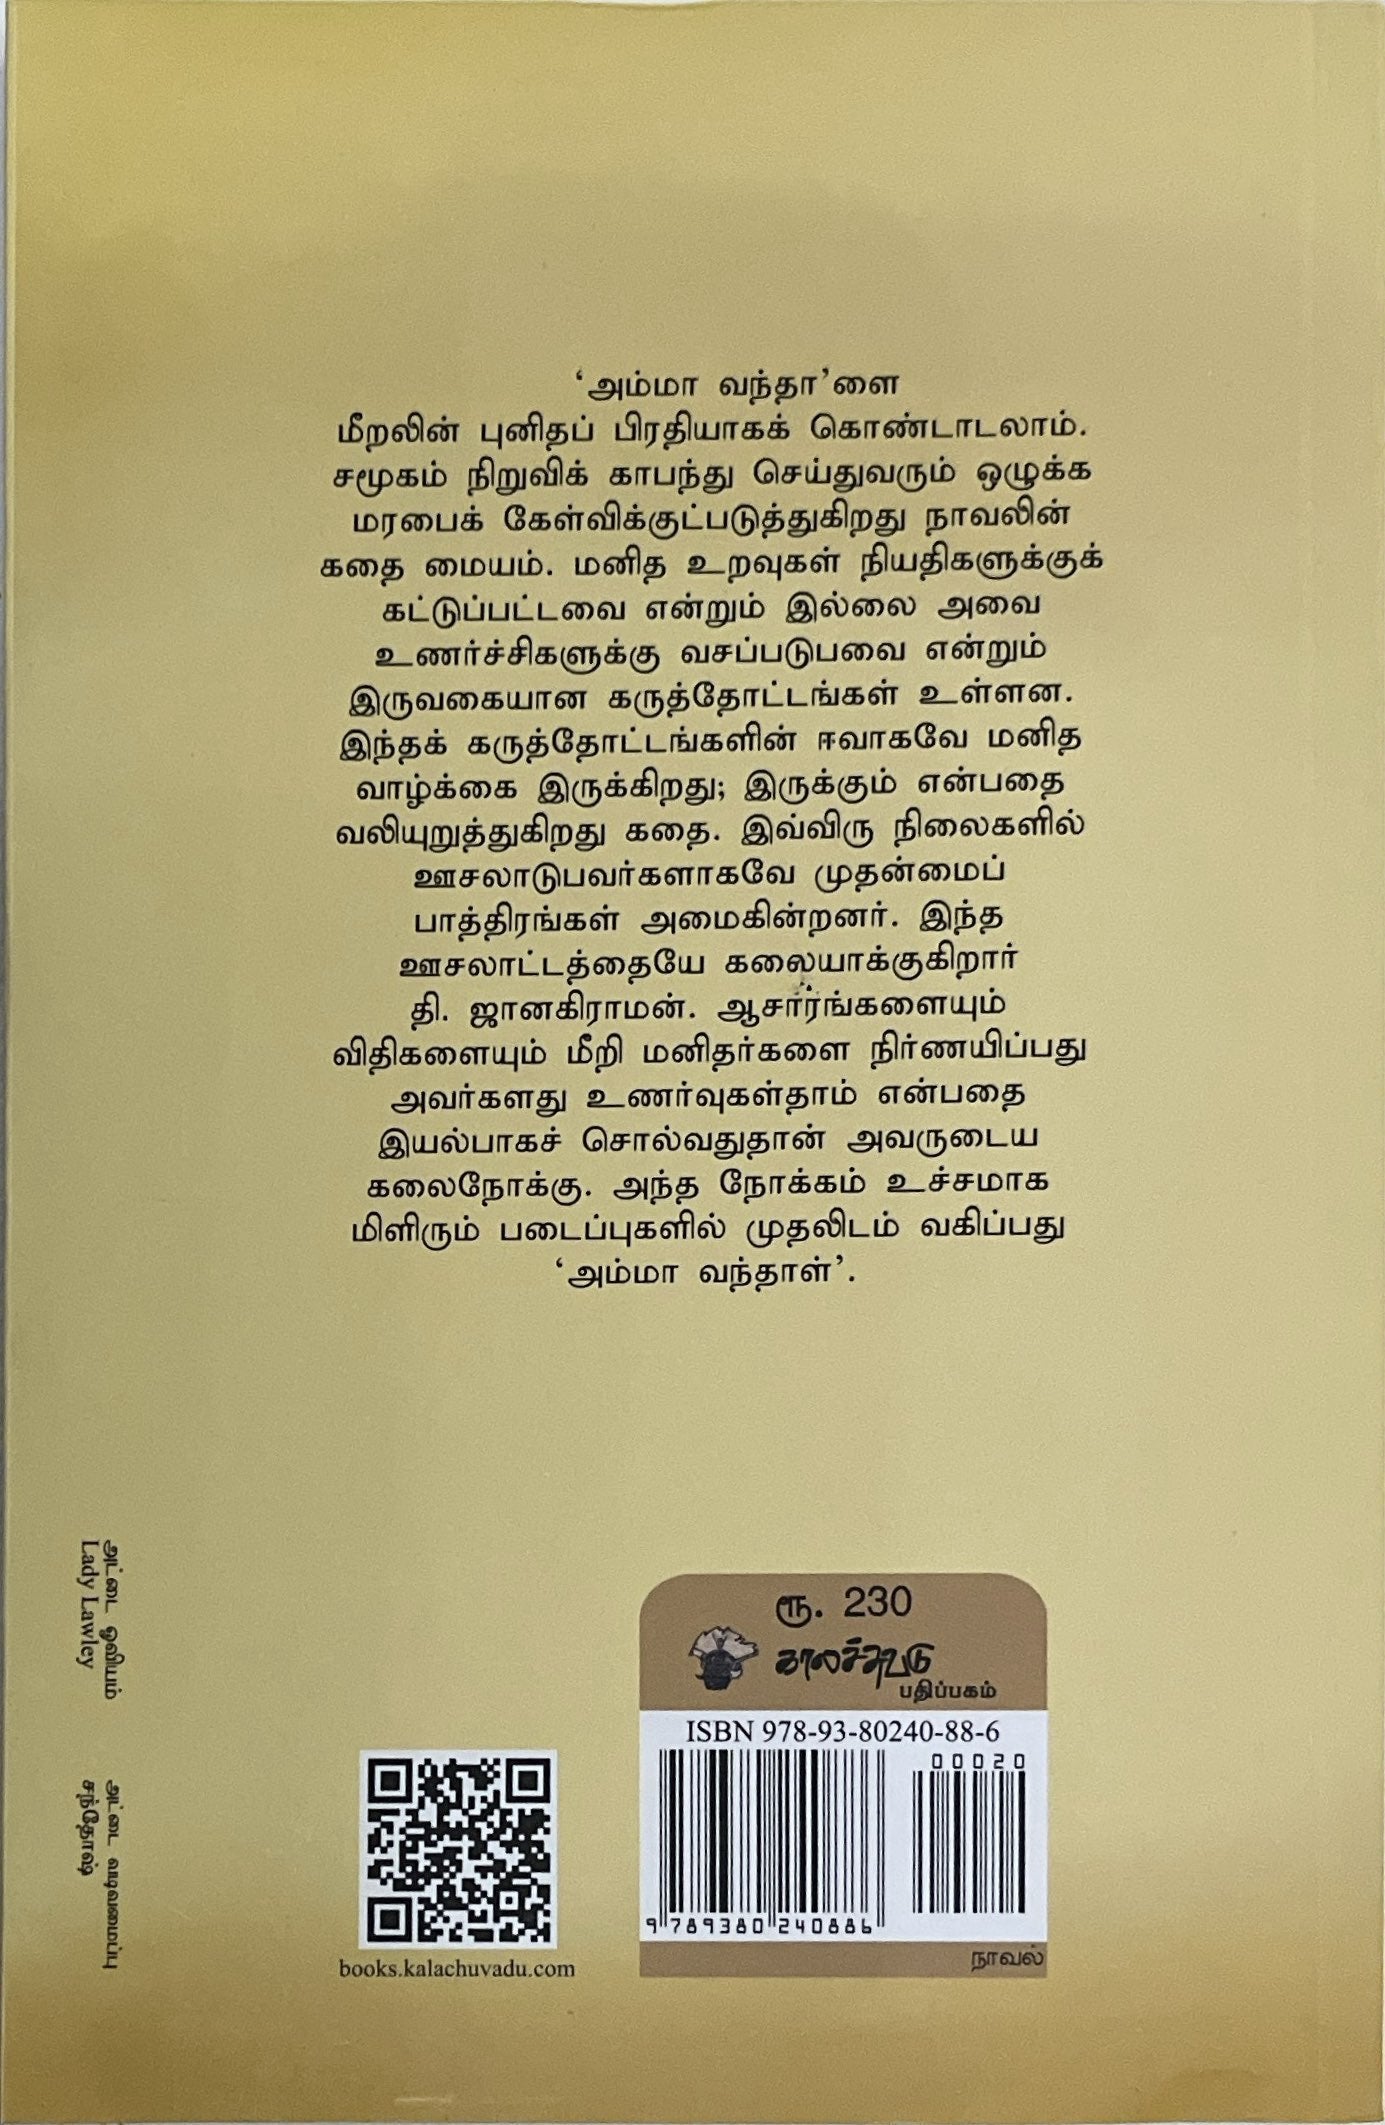 ‘அம்மா வந்தா’ளை
மீறலின் புனிதப் பிரதியாகக் கொண்டாடலாம்.
சமூகம் நிறுவிக் காபந்து செய்துவரும் ஒழுக்க
மரபைக் கேள்விக்குட்படுத்துகிறது நாவலின்
கதை மையம். மனித உறவுகள் நியதிகளுக்குக்
கட்டுப்பட்டவை என்றும் இல்லை அவை
உணர்ச்சிகளுக்கு வசப்படுபவை என்றும்
இருவகையான கருத்தோட்டங்கள் உள்ளன.
இந்தக் கருத்தோட்டங்களின் ஈவாகவே மனித
வாழ்க்கை இருக்கிறது; இருக்கும் என்பதை
வலியுறுத்துகிறது கதை. இவ்விரு நிலைகளில்
ஊசலாடுபவர்களாகவே முதன்மைப்
பாத்திரங்கள் அமைகின்றனர். இந்த
ஊசலாட்டத்தையே கலையாக்குகிறார்
தி. ஜானகிராமன். ஆசாரங்களையும்
விதிகளையும் மீறி மனிதர்களை நிர்ணயிப்பது
அவர்களது உணர்வுகள்தாம் என்பதை
இயல்பாகச் சொல்வதுதான் அவருடைய
கலைநோக்கு. அந்த நோக்கம் உச்சமாக
மிளிரும் படைப்புகளில் முதலிடம் வகிப்பது
‘அம்மா வந்தாள்’.
அட்டை ஓவியம்
Lady Lawley
அட்டை வடிவமைப்பு
சந்தோஷ்
books.kalachuvadu.com
ரூ. 230
காலச்சுவடு
பதிப்பகம்
ISBN 978-93-80240-88-6
00020
9 789380 240886
நாவல்